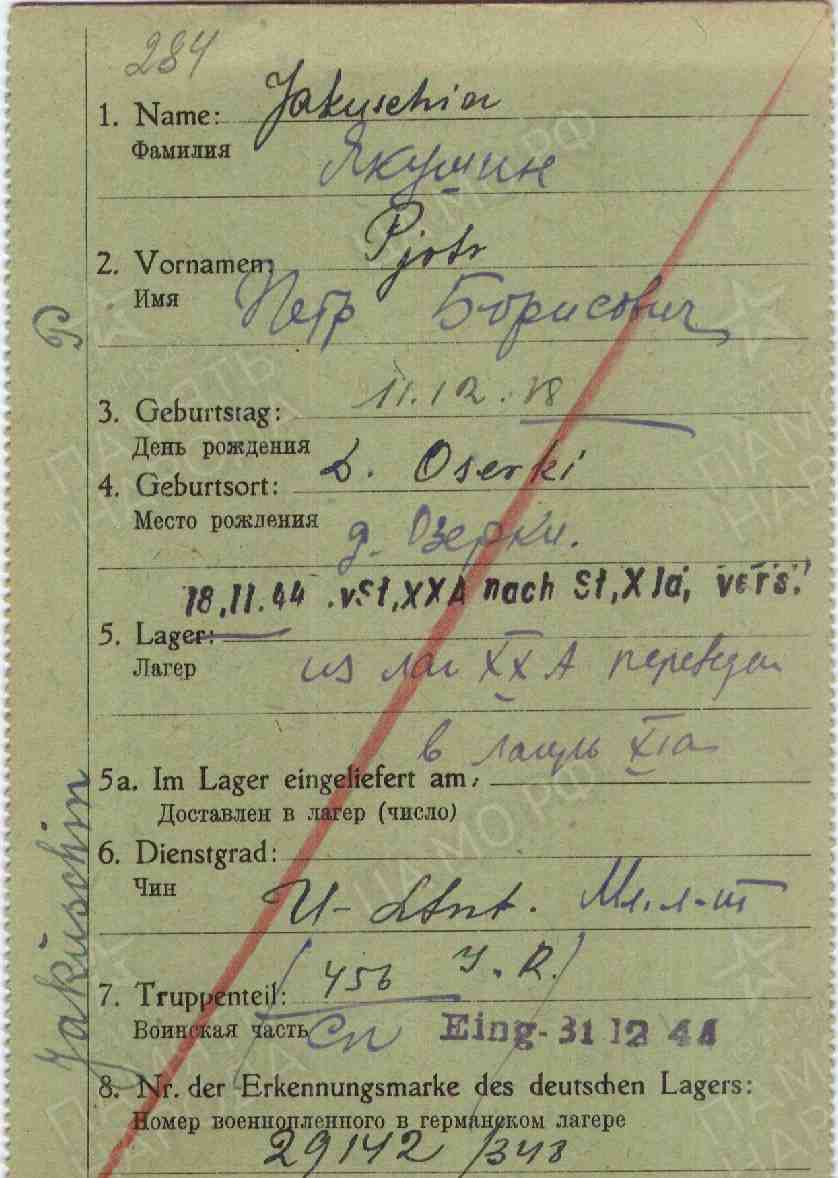 284
1. Name: Jakuschin
Фамилия
Якушин
2. Vornamen: Pjotr
Имя Петр Борисович
P
3. Geburtstag: 11.12.18
День рождения
4. Geburtsort: D. Oserki
Место рождения д. Озерки.
18.11.44 .v.St,XXA nach St,XIa, vers.
5. Lager:
Лагер из лаг XXA переведен
в лагерь XIa
5a. Im Lager eingeliefert am:
Доставлен в лагер (число)
6. Dienstgrad:
Чин U-Ltnt. Мл. л-т
7. Truppenteil: (456 J.R.)
Воинская часть СП Eing-31 12 44
8. Nr. der Erkennungsmarke des deutschen Lagers:
Номер военнопленного в германском лагере
29142 /348
Jakuschin